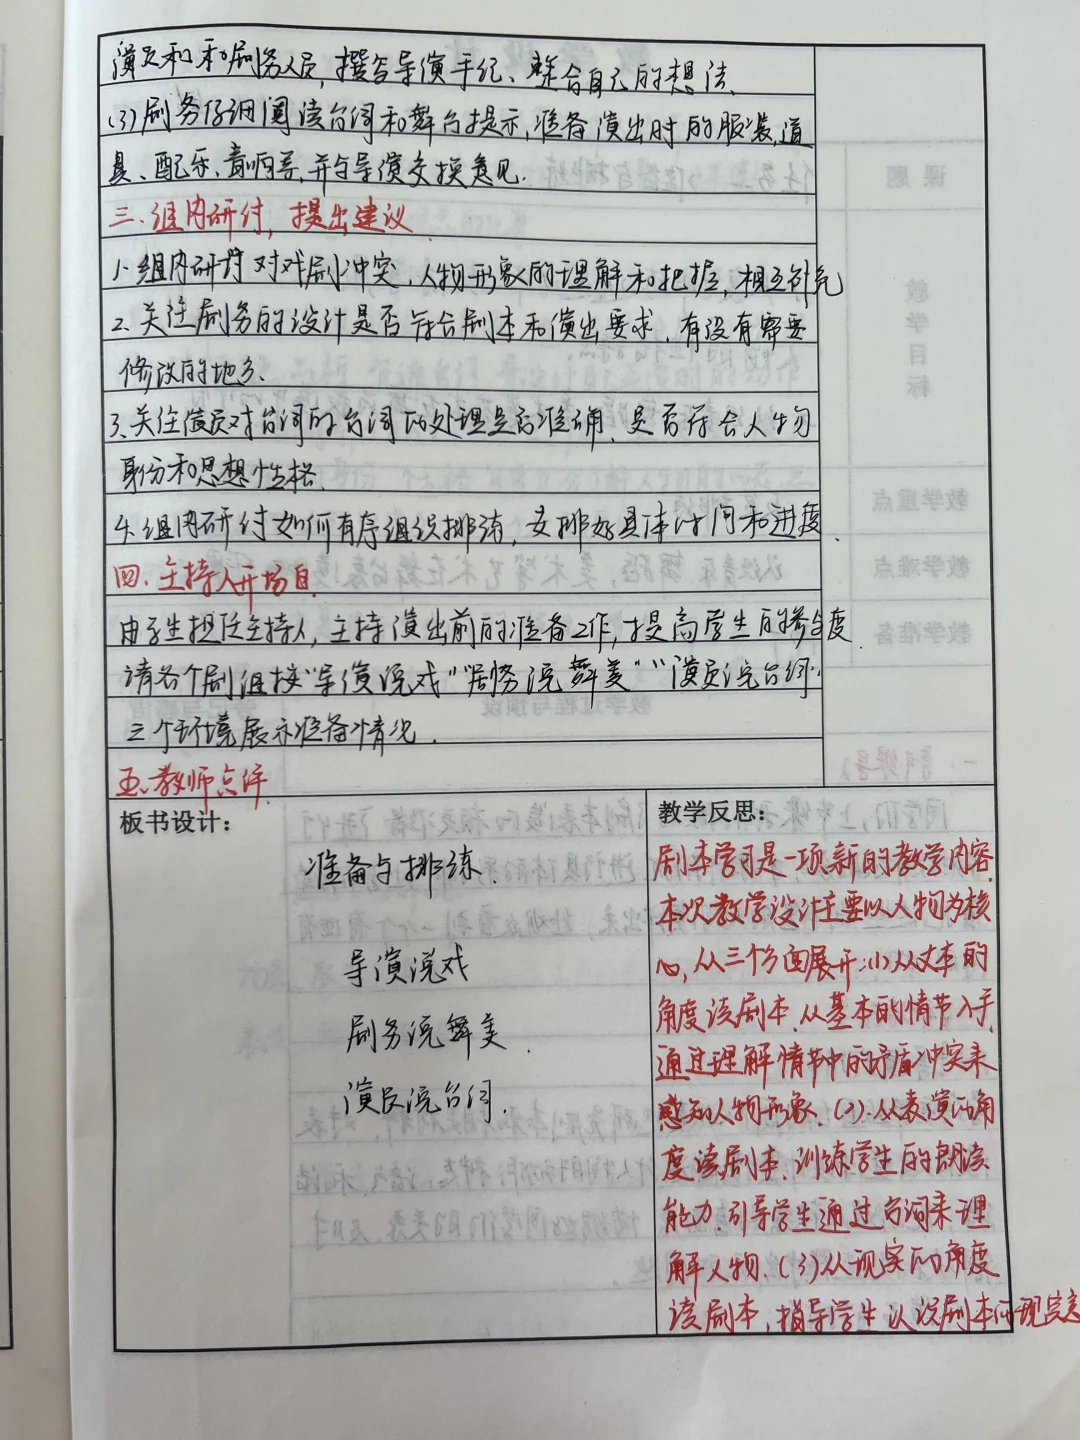 演员和和剧务人员,撰写导演手纪、整合自己的想法.
(3)剧务仔细阅读台词和舞台提示,准备演出时的服装,道
具、配乐、音响等,并与导演交换意见.
三.组内研讨,提出建议
1.组内研讨对戏剧冲突,人物形象的理解和把握,相互补充
2.关注剧务的设计是否符合剧本和演出要求,有没有需要
修改的地方.
3.关注演员对台词的台词的处理是否准确,是否符合人物
身份和思想性格.
4.组内研讨如何有序组织排演,安排好具体时间和进度.
四.主持人开场白.
由学生担任主持人,主持演出前的准备工作,提高学生的参与度
请各个剧组按"导演说戏""剧务说舞美""演员说台词"
三个环境展示准备情况.
五.教师点评.
板书设计:
准备与排练.
导演说戏
剧务说舞美.
演员说台词.
教学反思:
剧本学习是一项新的教学内容
本次教学设计主要以人物为核
心,从三个方面展开:(1)从文本的
角度读剧本.从基本的情节入手,
通过理解情节中的矛盾冲突来
感知人物形象.(2).从表演的角
度读剧本.训练学生的朗读
能力.引导学生通过台词来理
解人物.(3)从现实的角度
读剧本,指导学生认识剧本的现实意
课题
教学目标
教学重点
教学难点
教学准备